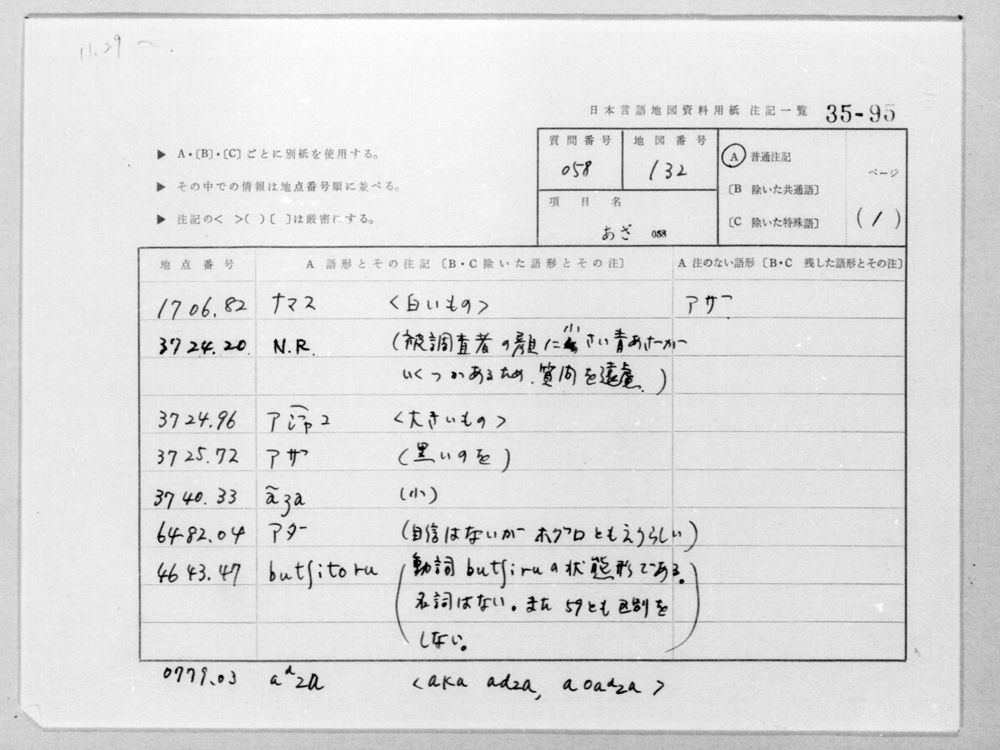 11.29 〜.
日本言語地図資料用紙 注記一覧 35-95
▶ A・〔B〕・〔C〕ごとに別紙を使用する。
▶ その中での情報は地点番号順に並べる。
▶ 注記の< >( )〔 〕は厳密にする。
質問番号 地図番号
058 132
項目名
あざ 058
A 普通注記
〔B 除いた共通語〕
〔C 除いた特殊語〕
ページ
(1)
地点番号 A 語形とその注記〔B・C 除いた語形とその注〕 A 注のない語形〔B・C 残した語形とその注〕
1706.82 ナマス <白いもの> アザ
3724.20 N.R. (被調査者の顔に小さい青あざが
いくつかあるため、質問を遠慮。)
3724.96 <大きいもの>
3725.72 アザ (黒いのを)
3740.33 ãʒa (小)
6482.04 アダー (自信はないが ホグロともえうらしい)
4643.47 butʃitoru (動詞 butʃiruの状態形である。
名詞はない。また 59とも区別を
しない。)
0779.03 aᵈza <aka adza, aoaᵈza>